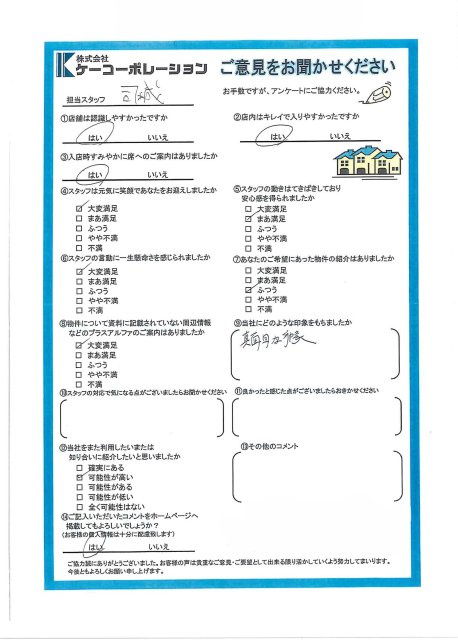 株式会社
ケーコーポレーション
ご意見をお聞かせください
担当スタッフ 司城
お手数ですが、アンケートにご協力ください。
①店舗は認識しやすかったですか
はい いいえ
②店内はキレイで入りやすかったですか
はい いいえ
③入店時すみやかに席へのご案内はありましたか
はい いいえ
④スタッフは元気に笑顔であなたをお迎えしましたか
大変満足
まあ満足
ふつう
やや不満
不満
⑤スタッフの動きはてきぱきしており
安心感を得られましたか
大変満足
まあ満足
ふつう
やや不満
不満
⑥スタッフの言動に一生懸命さを感じられましたか
大変満足
まあ満足
ふつう
やや不満
不満
⑦あなたのご希望にあった物件の紹介はありましたか
大変満足
まあ満足
ふつう
やや不満
不満
⑧物件について資料に記載されていない周辺情報
などのプラスアルファのご案内はありましたか
大変満足
まあ満足
ふつう
やや不満
不満
⑨当社にどのような印象をもちましたか
真面目な印象
⑩スタッフの対応で気になる点がございましたらお聞かせください
⑪良かったと感じた点がございましたらおきかせください
⑫当社をまた利用したいまたは
知り合いに紹介したいと思いましたか
確実にある
可能性が高い
可能性がある
可能性が低い
全く可能性はない
⑬その他のコメント
⑭ご記入いただいたコメントをホームページへ
掲載してもよろしいでしょうか？
(お客様の個人情報は十分に配慮致します)
はい いいえ
ご協力誠にありがとうございました。お客様の声は貴重なご意見・ご要望として出来る限り活かしていくよう努力してまいります。
今後ともよろしくお願い申し上げます。